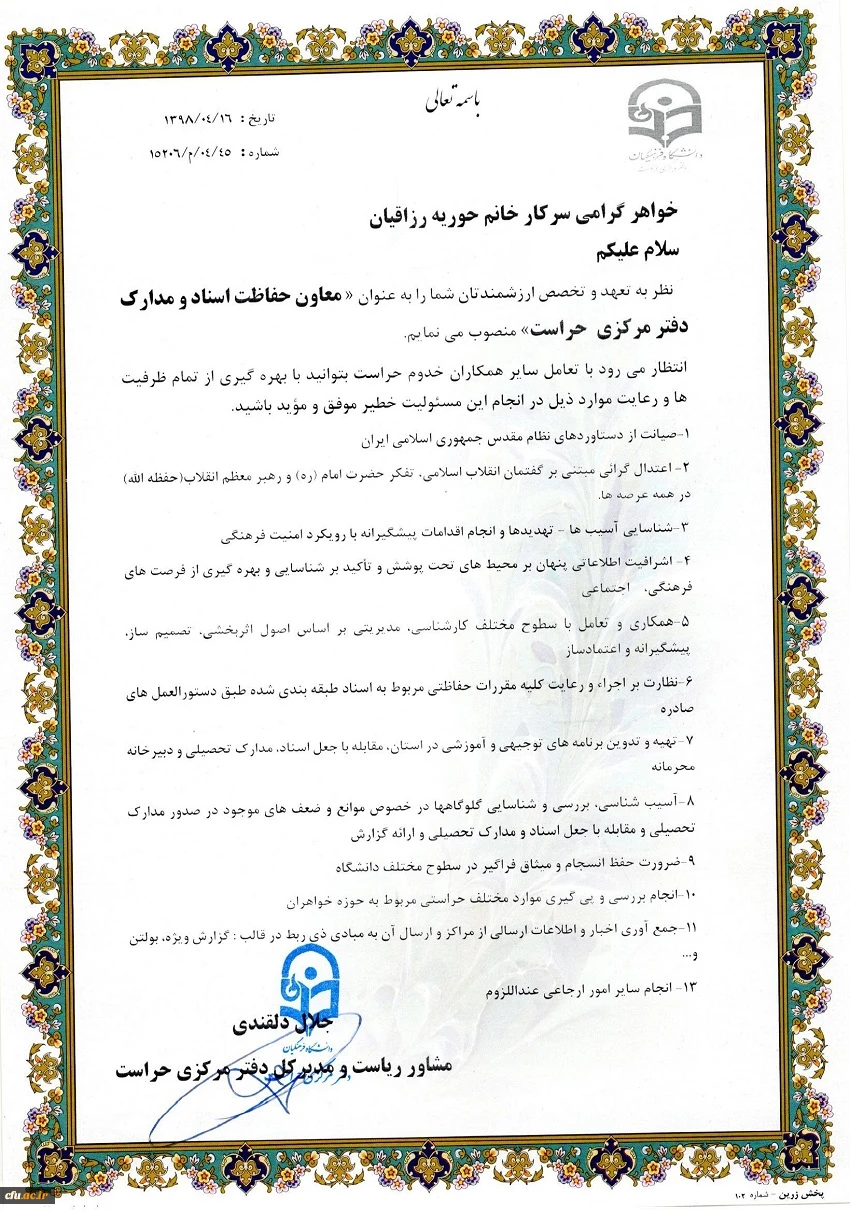 باسمه تعالی
دانشگاه فرهنگیان
تاریخ : ۱۳۹۸/۰۴/۱۶
شماره : ۱۵۲۰۶/م/۰۴/۴۵
خواهر گرامی سرکار خانم حوریه رزاقیان
سلام علیکم
نظر به تعهد و تخصص ارزشمندتان شما را به عنوان « معاون حفاظت اسناد و مدارک
دفتر مرکزی حراست» منصوب می نمایم.
انتظار می رود با تعامل سایر همکاران خدوم حراست بتوانید با بهره گیری از تمام ظرفیت
ها و رعایت موارد ذیل در انجام این مسئولیت خطیر موفق و مؤید باشید.
۱-صیانت از دستاوردهای نظام مقدس جمهوری اسلامی ایران
۲- اعتدال گرائی مبتنی بر گفتمان انقلاب اسلامی، تفکر حضرت امام (ره) و رهبر معظم انقلاب(حفظه الله)
در همه عرصه ها.
۳-شناسایی آسیب ها - تهدیدها و انجام اقدامات پیشگیرانه با رویکرد امنیت فرهنگی
۴- اشرافیت اطلاعاتی پنهان بر محیط های تحت پوشش و تأکید بر شناسایی و بهره گیری از فرصت های
فرهنگی، اجتماعی
۵-همکاری و تعامل با سطوح مختلف کارشناسی، مدیریتی بر اساس اصول اثربخشی، تصمیم ساز،
پیشگیرانه و اعتمادساز
۶-نظارت بر اجراء و رعایت کلیه مقررات حفاظتی مربوط به اسناد طبقه بندی شده طبق دستورالعمل های
صادره
۷-تهیه و تدوین برنامه های توجیهی و آموزشی در استان، مقابله با جعل اسناد، مدارک تحصیلی و دبیرخانه
محرمانه
۸-آسیب شناسی، بررسی و شناسایی گلوگاهها در خصوص موانع و ضعف های موجود در صدور مدارک
تحصیلی و مقابله با جعل اسناد و مدارک تحصیلی و ارائه گزارش
۹-ضرورت حفظ انسجام و میثاق فراگیر در سطوح مختلف دانشگاه
۱۰-انجام بررسی و پی گیری موارد مختلف حراستی مربوط به حوزه خواهران
۱۱-جمع آوری اخبار و اطلاعات ارسالی از مراکز و ارسال آن به مبادی ذی ربط در قالب : گزارش ویژه، بولتن
و...
۱۳- انجام سایر امور ارجاعی عنداللزوم
جلال دلقندی
دانشگاه فرهنگیان
مشاور ریاست و مدیرکل دفتر مرکزی حراست
پخش زرین - شماره ۱۰۲
cfu.ac.ir